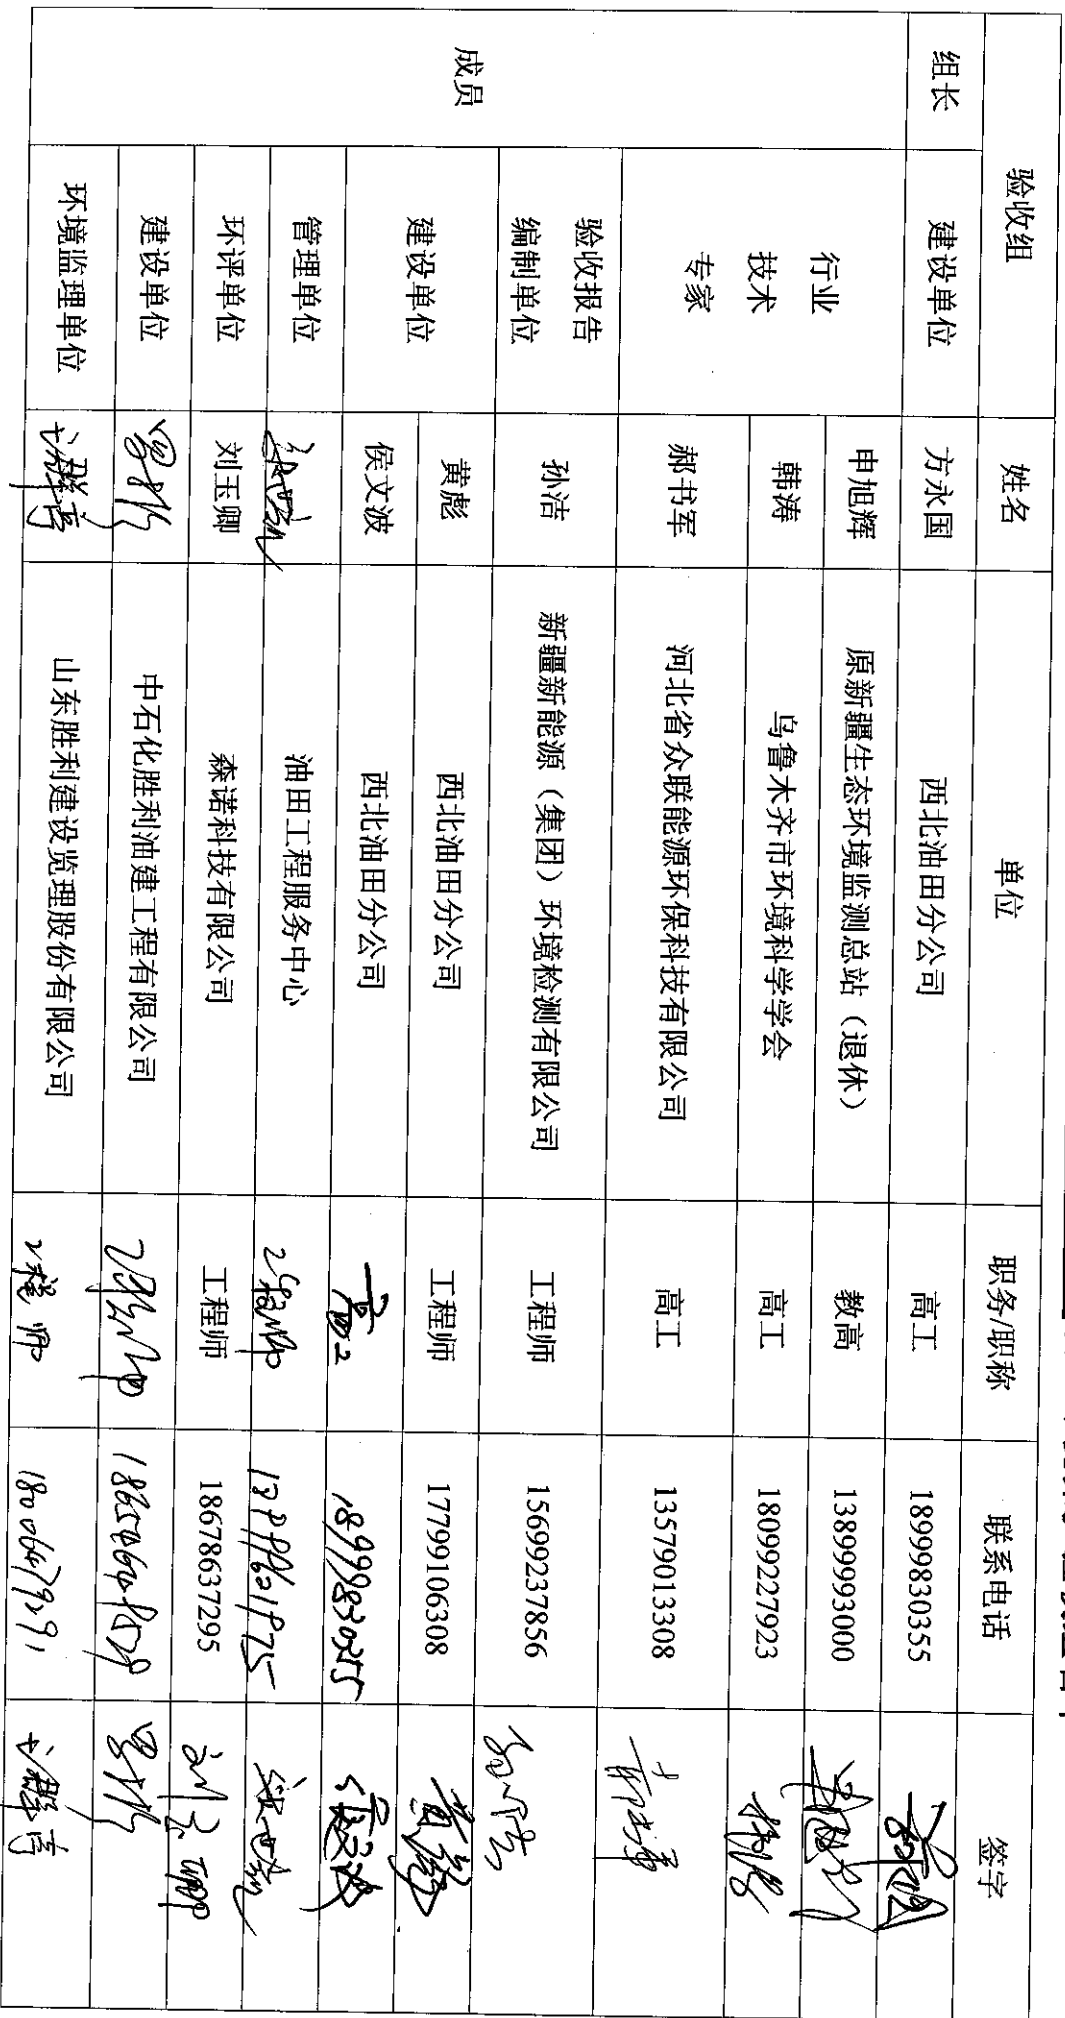 验收组 姓名 单位 职务/职称 联系电话 签字
组长 建设单位 方永国 西北油田分公司 高工 18999830355
成员
行业
技术
专家
申旭辉 原新疆生态环境监测总站（退休） 教高 13899993000
韩涛 乌鲁木齐市环境科学学会 高工 18099227923
郝书军 河北省众联能源环保科技有限公司 高工 13579013308
验收报告
编制单位
孙洁 新疆新能源（集团）环境检测有限公司 工程师 15699237856 孙洁
建设单位
黄彪 西北油田分公司 工程师 17799106308 黄彪
侯文波 西北油田分公司 18999830255 侯文波
管理单位 油田工程服务中心 工程师
环评单位 刘玉卿 森诺科技有限公司 工程师 18678637295 刘玉卿
建设单位 中石化胜利油建工程有限公司 工程师
环境监理单位 山东胜利建设览理股份有限公司 工程师 18006479291